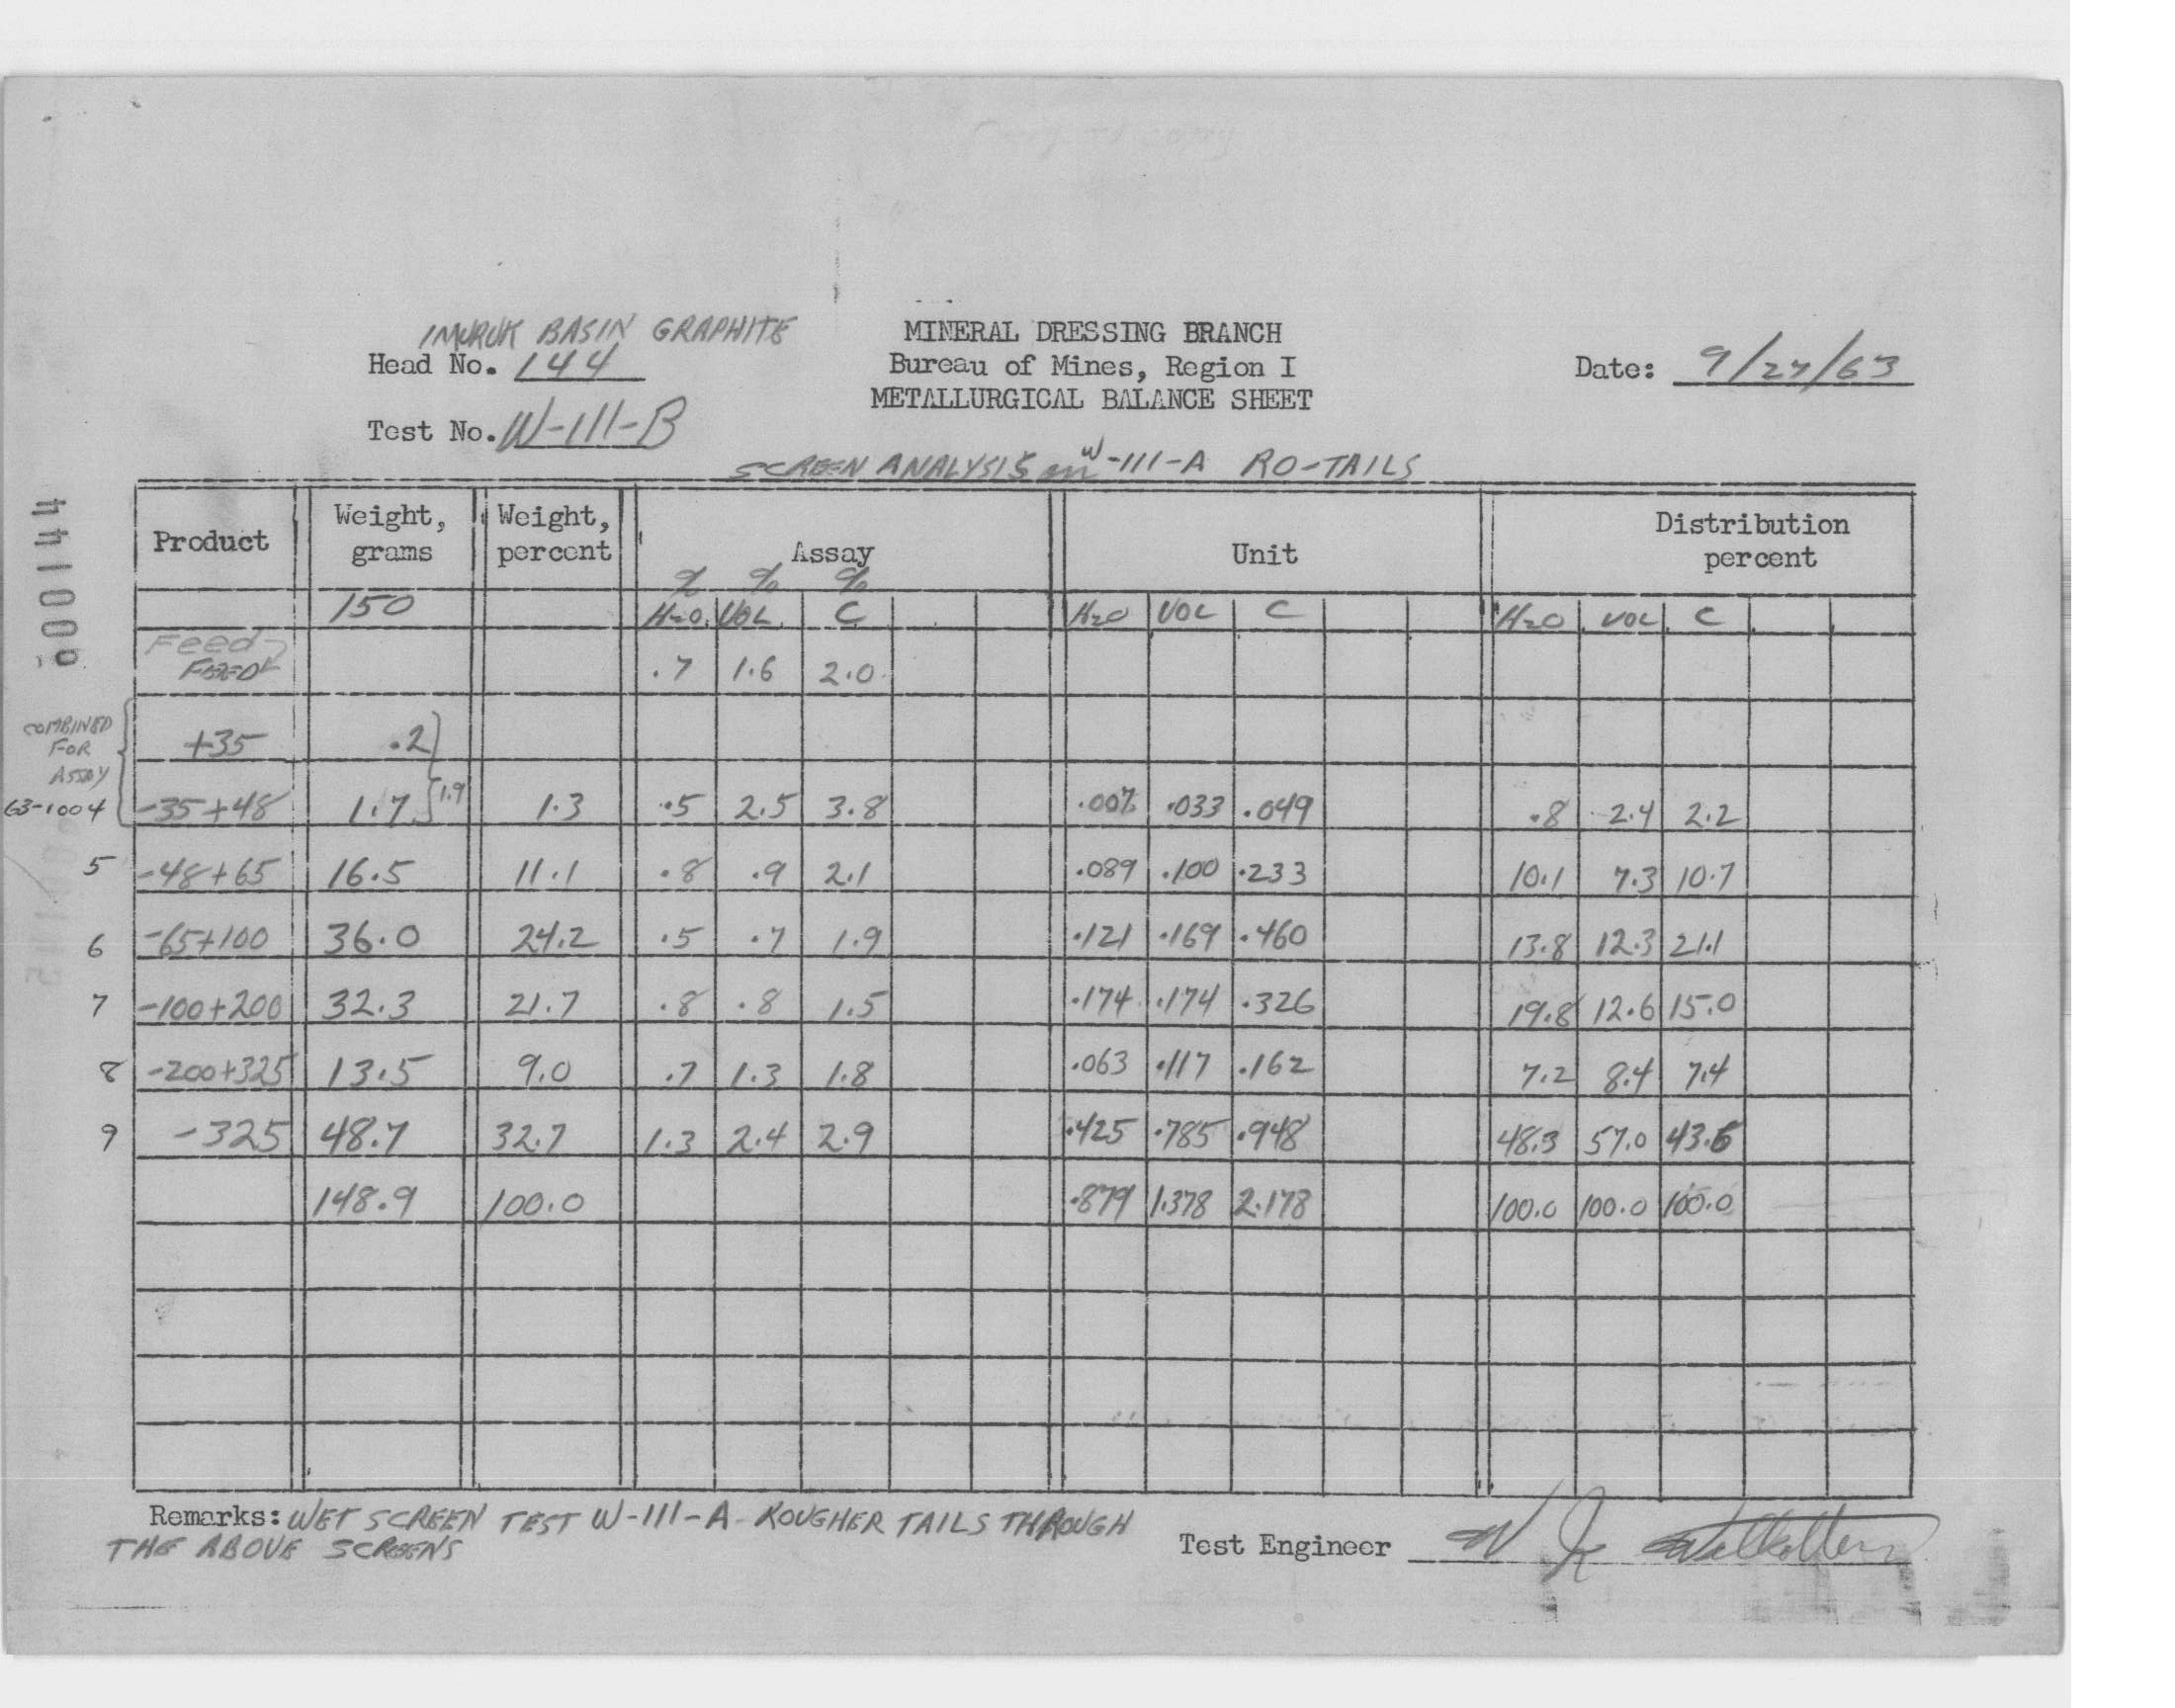 IMURUK BASIN GRAPHITE
Head No. 144
Test No. W-111-B
MINERAL DRESSING BRANCH
Bureau of Mines, Region I
METALLURGICAL BALANCE SHEET
Date: 9/27/63
SCREEN ANALYSIS on W-111-A RO-TAILS
Product Weight, grams Weight, percent Assay Unit Distribution percent
% % %
150 H2O VOL C H2O VOL C H2O VOL C
Feed
FEED .7 1.6 2.0
COMBINED FOR ASSAY
+35 .2
63-1004 -35+48 1.7 1.9 1.3 .5 2.5 3.8 .007 .033 .049 .8 2.4 2.2
5 -48+65 16.5 11.1 .8 .9 2.1 .089 .100 .233 10.1 7.3 10.7
6 -65+100 36.0 24.2 .5 .7 1.9 .121 .169 .460 13.8 12.3 21.1
7 -100+200 32.3 21.7 .8 .8 1.5 .174 .174 .326 19.8 12.6 15.0
8 -200+325 13.5 9.0 .7 1.3 1.8 .063 .117 .162 7.2 8.4 7.4
9 -325 48.7 32.7 1.3 2.4 2.9 .425 .785 .948 48.3 57.0 43.6
148.9 100.0 .879 1.378 2.178 100.0 100.0 100.0
Remarks: WET SCREEN TEST W-111-A ROUGHER TAILS THROUGH
THE ABOVE SCREENS
Test Engineer